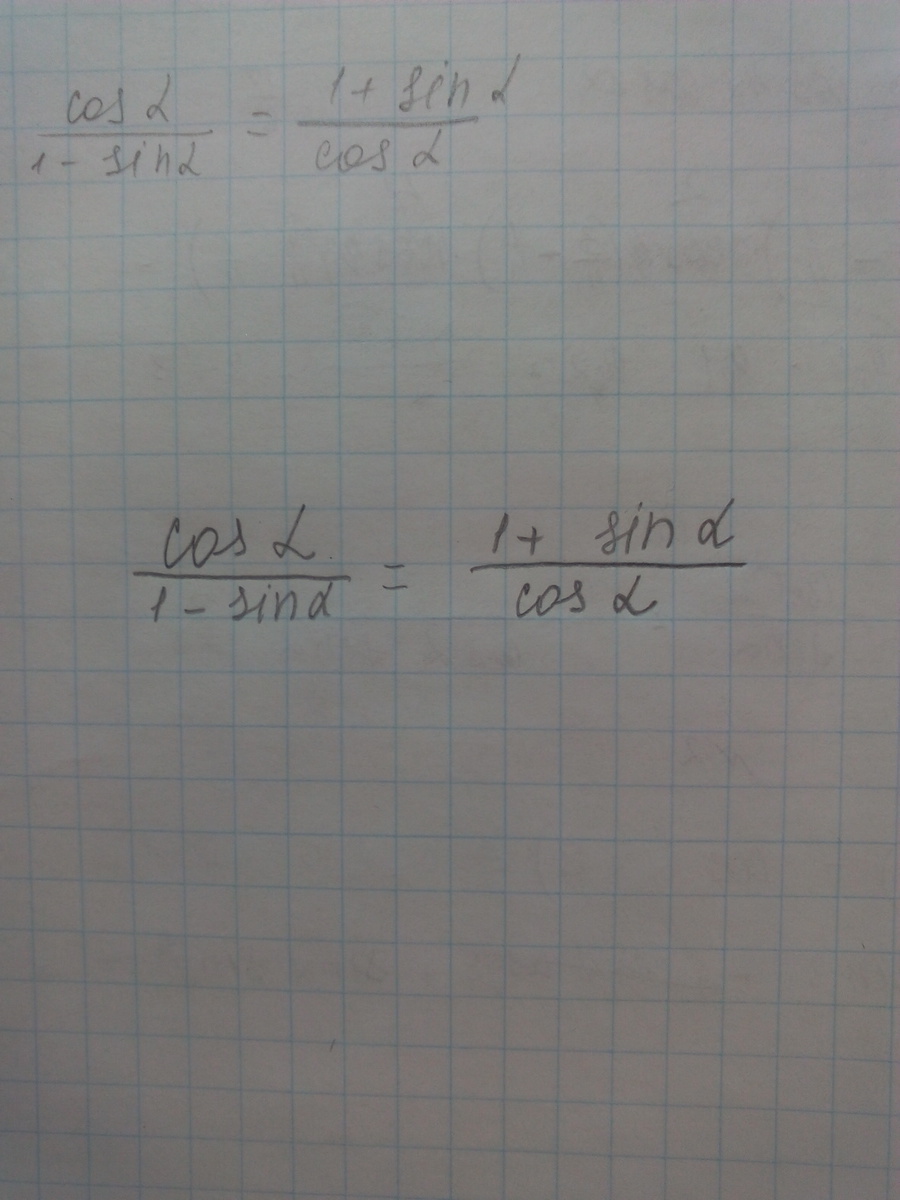 cos α / 1 - sin α = 1 + sin α / cos α
cos α / 1 - sin α = 1 + sin α / cos α